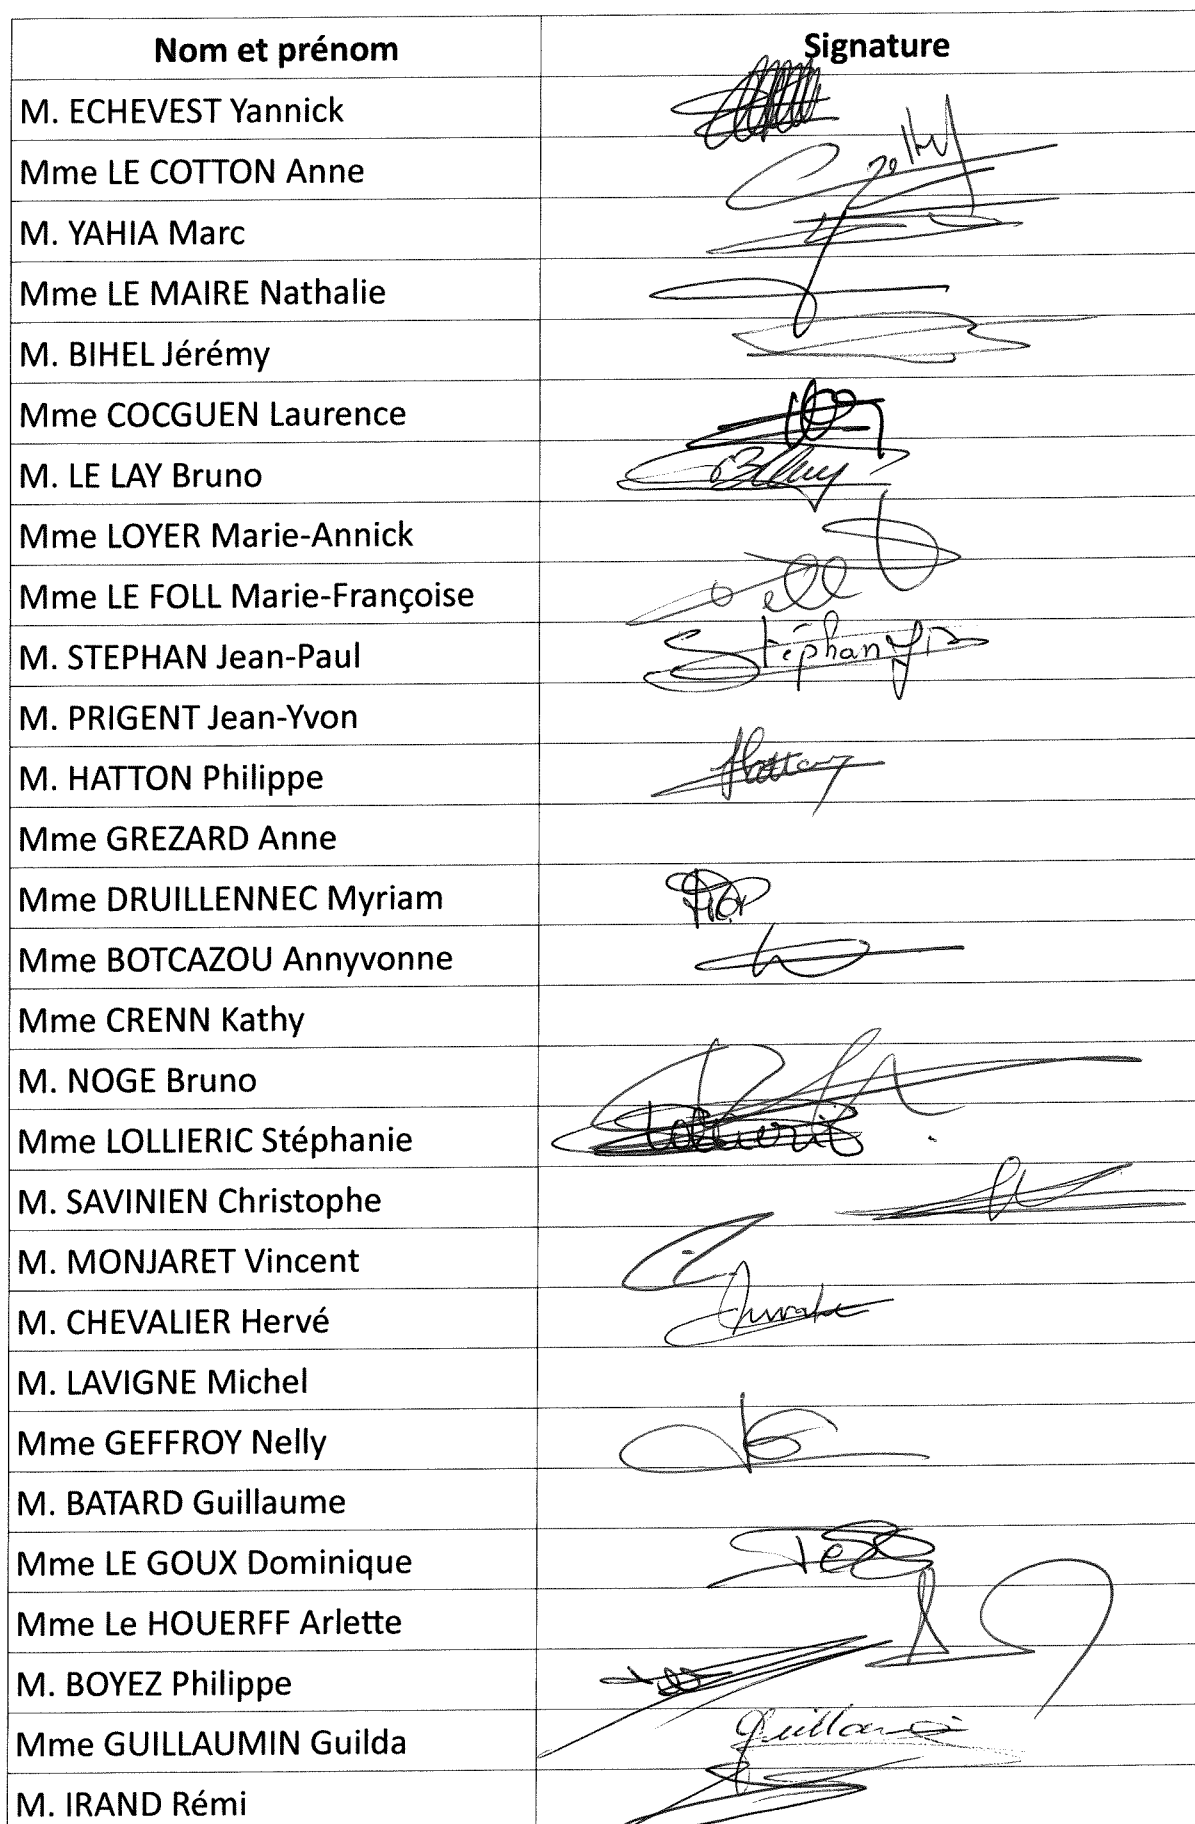 Nom et prénom Signature
M. ECHEVEST Yannick
Mme LE COTTON Anne
M. YAHIA Marc
Mme LE MAIRE Nathalie
M. BIHEL Jérémy
Mme COCGUEN Laurence
M. LE LAY Bruno
Mme LOYER Marie-Annick
Mme LE FOLL Marie-Françoise
M. STEPHAN Jean-Paul Stéphan JP
M. PRIGENT Jean-Yvon
M. HATTON Philippe
Mme GREZARD Anne
Mme DRUILLENNEC Myriam
Mme BOTCAZOU Annyvonne
Mme CRENN Kathy
M. NOGE Bruno
Mme LOLLIERIC Stéphanie
M. SAVINIEN Christophe
M. MONJARET Vincent
M. CHEVALIER Hervé
M. LAVIGNE Michel
Mme GEFFROY Nelly
M. BATARD Guillaume
Mme LE GOUX Dominique
Mme Le HOUERFF Arlette
M. BOYEZ Philippe
Mme GUILLAUMIN Guilda
M. IRAND Rémi